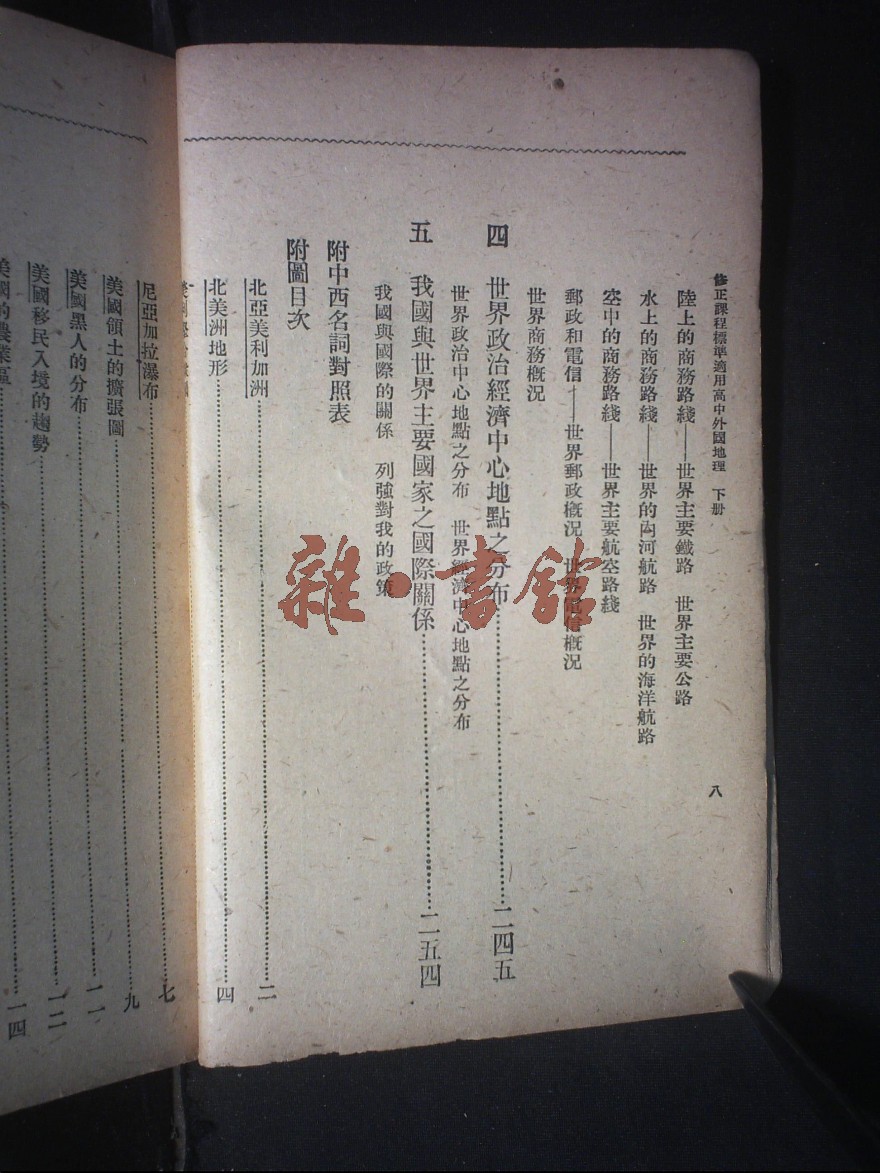 修正課程標準適用高中外國地理 下册 八
陸上的商務路綫——世界主要鐵路 世界主要公路
水上的商務路綫——世界的內河航路 世界的海洋航路
空中的商務路綫——世界主要航空路綫
郵政和電信——世界郵政概況 世界電信概況
世界商務概況
四 世界政治經濟中心地點之分布……二四五
世界政治中心地點之分布 世界經濟中心地點之分布
五 我國與世界主要國家之國際關係……二五四
我國與國際的關係 列強對我的政策
附中西名詞對照表
附圖目次
北亞美利加洲……二
北美洲地形……四
尼亞加拉瀑布……七
美國領土的擴張圖……九
美國黑人的分布……一一
美國移民入境的趨勢……一二
美國的農業區……一四
雜·書館